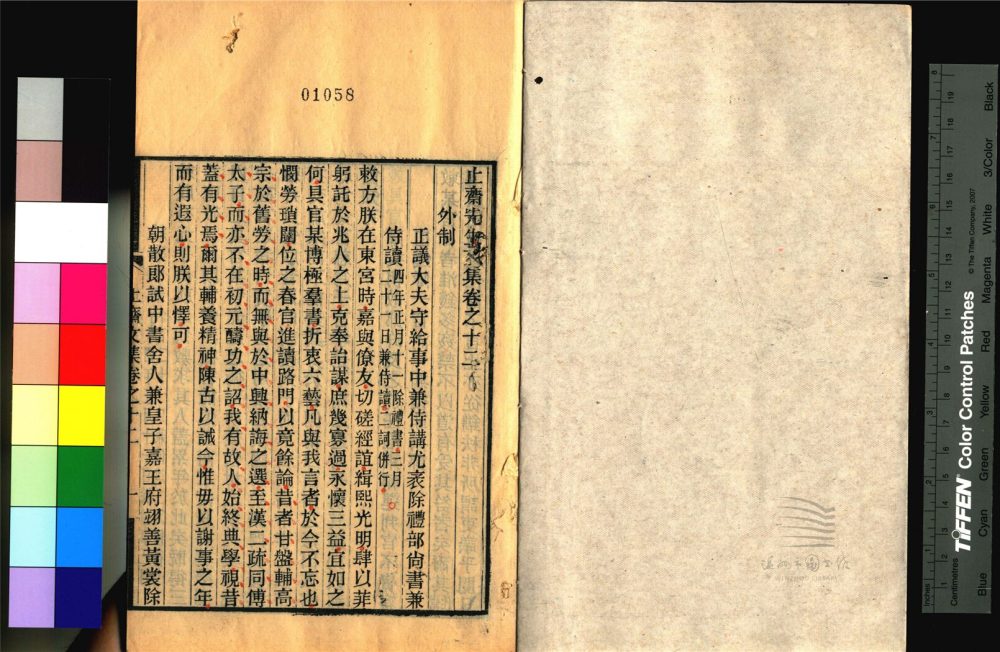 01058
止齋先生文集卷之十二
外制
正議大夫守給事中兼侍講尤袤除禮部尚書兼
侍讀四年正月十一除禮書三月
二十一日兼侍讀二詞併行
敕方朕在東宮時嘉與僚友切磋經誼緝熙光明肆以菲
躬託於兆人之上克奉詒謀庶幾寡過永懷三益宜如之
何具官某博極羣書折衷六藝凡與我言者於今不忘也
憫勞瑣闥位之春官進讀路門以竟餘論昔者甘盤輔高
宗於舊勞之時而無與於中興納誨之選至漢二疏同傅
太子而亦不在初元疇功之詔我有故人始終典學視昔
蓋有光焉爾其輔養精神陳古以誡今惟毋以謝事之年
而有遐心則朕以懌可
朝散郎試中書舍人兼皇子嘉王府翊善黃裳除
止齋文集卷之十二
一
TIFFEN Color Control Patches
© The Tiffen Company, 2007
Inches
Centimetres
Blue
Cyan
Green
Yellow
Red
Magenta
White
3/Color
Black